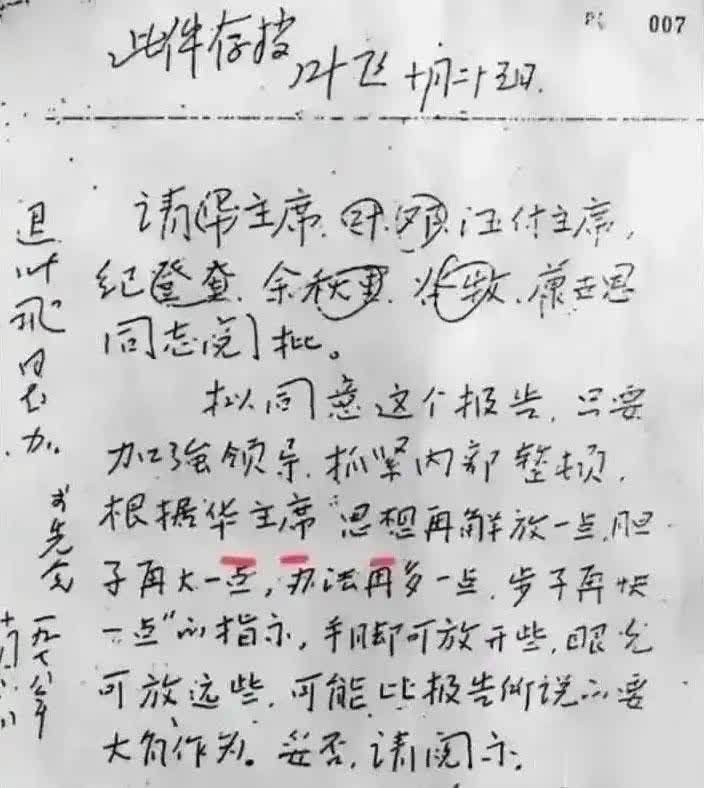 007
此件存档
叶飞 十月二十五日.
请华主席、叶、邓、汪付主席,
纪登奎、余秋里、谷牧、康世恩
同志阅批。
拟同意这个报告,只要
加强领导,抓紧内部整顿,
根据华主席“思想再解放一点,胆
子再大一点,办法再多一点,步子再快
一点”的指示,手脚可放开些,眼光
可放远些,可能比报告所说的要
大有作为。妥否,请阅示。
退叶飞同志办。
李先念
一九七八年